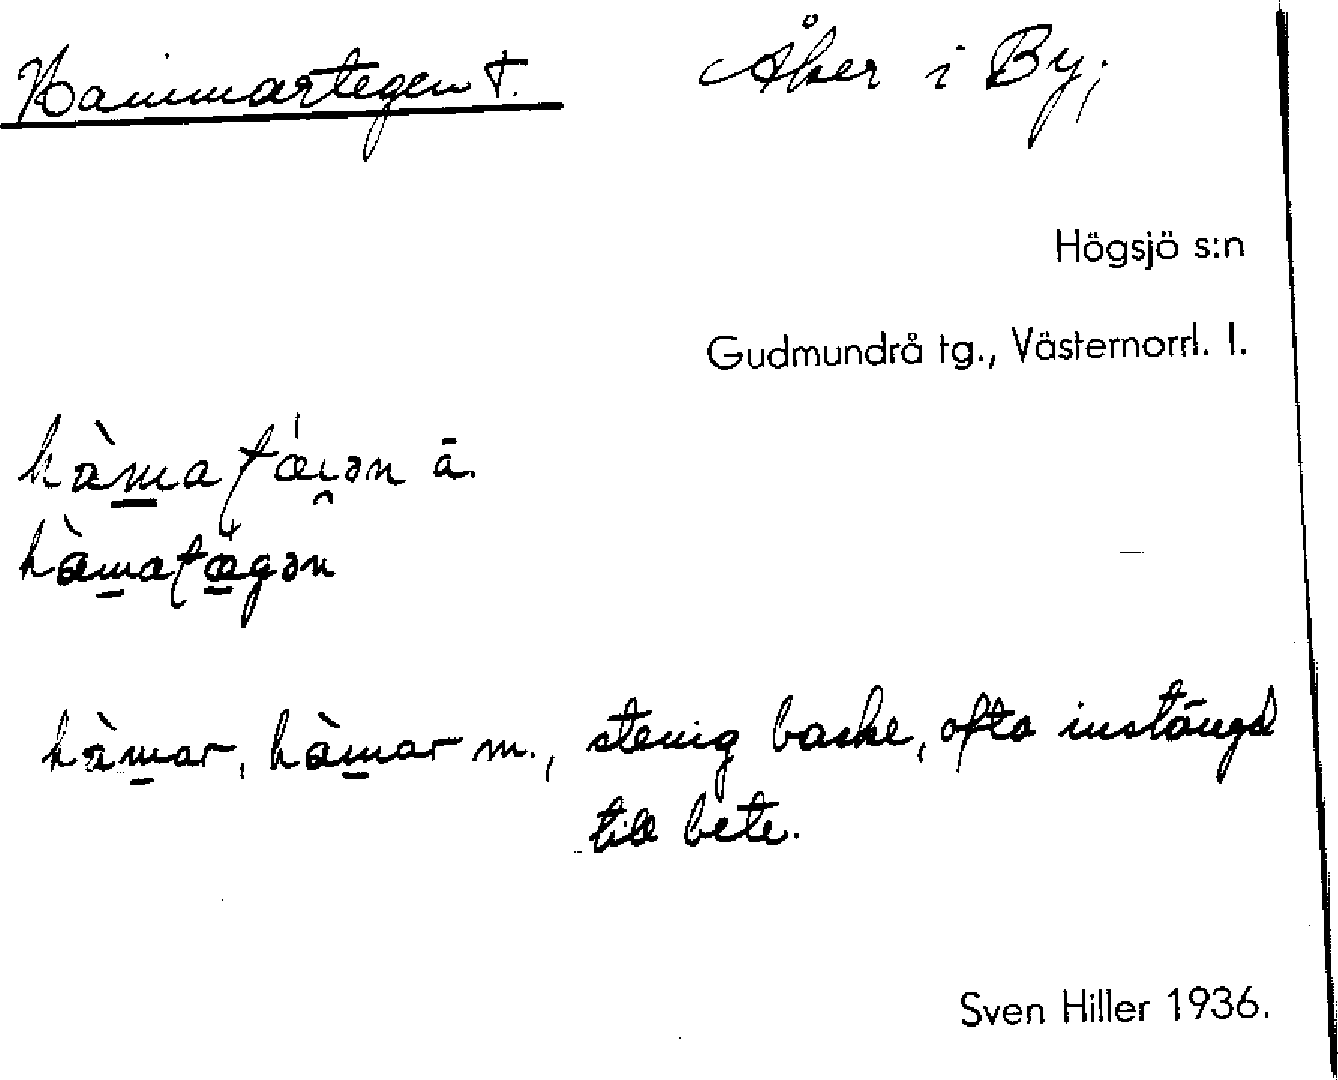 Hammartegen †. Åker i By;
Högsjö s:n
Gudmundrå tg., Västernorrl. l.
hàmatǽi̯ən ā.
hàmatǽgən
hàmar, hàmar m., stenig backe, ofta instängd
till bete.
Sven Hiller 1936.